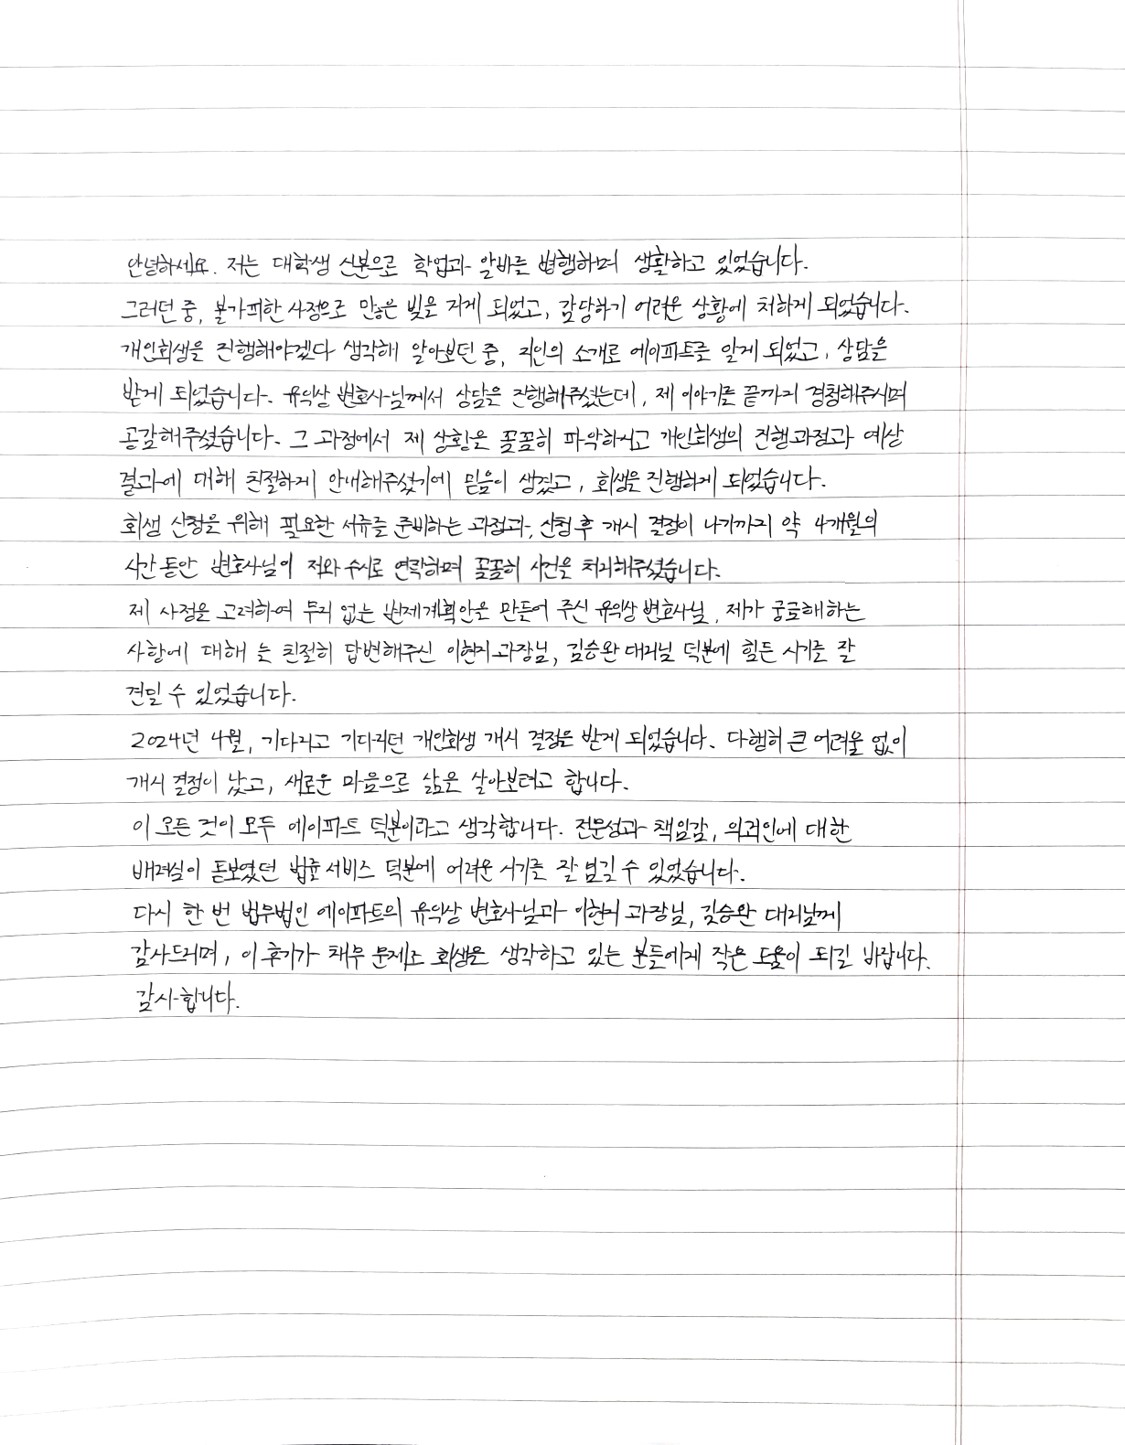 안녕하세요. 저는 대학생 신분으로 학업과 알바를 병행하며 생활하고 있었습니다.
그러던 중, 불가피한 사정으로 많은 빚을 지게 되었고, 감당하기 어려운 상황에 처하게 되었습니다.
개인회생을 진행해야겠다 생각해 알아보던 중, 지인의 소개로 에이파트를 알게 되었고, 상담을
받게 되었습니다. 유익상 변호사님께서 상담을 진행해주셨는데, 제 이야기를 끝까지 경청해주시며
공감해주셨습니다. 그 과정에서 제 상황을 꼼꼼히 파악하시고 개인회생의 진행과정과 예상
결과에 대해 친절하게 안내해주셨기에 믿음이 생겼고, 회생을 진행하게 되었습니다.
회생 신청을 위해 필요한 서류를 준비하는 과정과, 신청 후 개시 결정이 나기까지 약 4개월의
시간 동안 변호사님이 저와 수시로 연락하며 꼼꼼히 사건을 처리해주셨습니다.
제 사정을 고려하여 무리 없는 변제계획안을 만들어 주신 유익상 변호사님, 제가 궁금해하는
사항에 대해 늘 친절히 답변해주신 이현지 과장님, 김승완 대리님 덕분에 힘든 시기를 잘
견딜 수 있었습니다.
2024년 4월, 기다리고 기다리던 개인회생 개시 결정을 받게 되었습니다. 다행히 큰 어려움 없이
개시 결정이 났고, 새로운 마음으로 삶을 살아보려고 합니다.
이 모든 것이 모두 에이파트 덕분이라고 생각합니다. 전문성과 책임감, 의뢰인에 대한
배려심이 돋보였던 법률 서비스 덕분에 어려운 시기를 잘 넘길 수 있었습니다.
다시 한 번 법무법인 에이파트의 유익상 변호사님과 이현지 과장님, 김승완 대리님께
감사드리며, 이 후기가 채무 문제로 회생을 생각하고 있는 분들에게 작은 도움이 되길 바랍니다.
감사합니다.